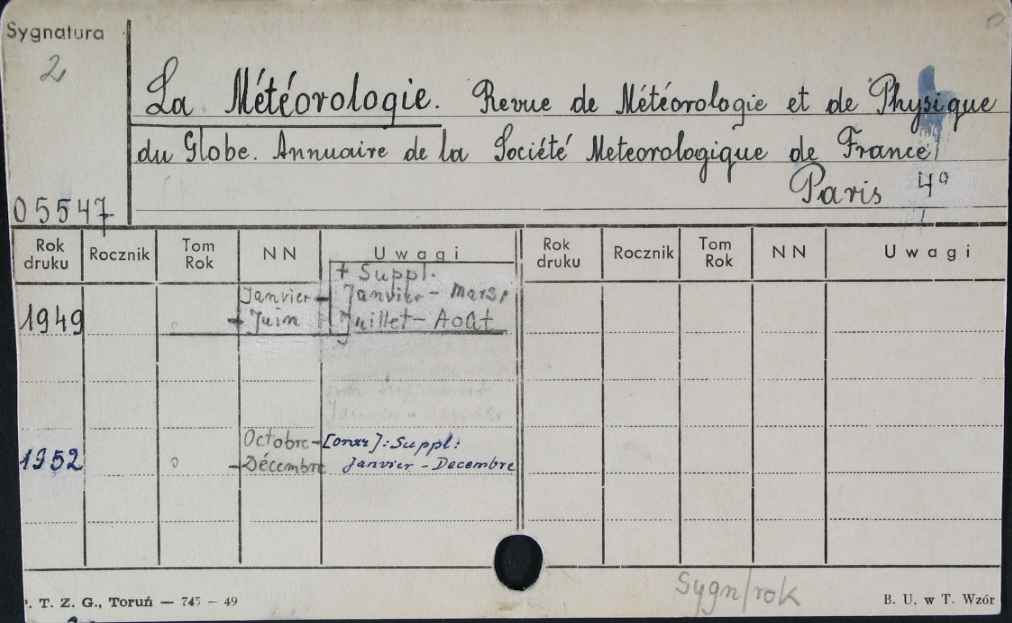 Sygnatura
2
La Météorologie. Revue de Météorologie et de Physique
du Globe. Annuaire de la Société Meteorologique de France
Paris 4°
05547
Rok druku Rocznik Tom Rok NN Uwagi Rok druku Rocznik Tom Rok NN Uwagi
+ Suppl.
Janvier- Janvier- Mars,
1949 - Juin Juillet- Août
Octobre- [oraz]: Suppl:
1952 -Décembre Janvier - Decembre
Sygn/rok
. T. Z. G., Toruń — 745 - 49 B. U. w T. Wzór